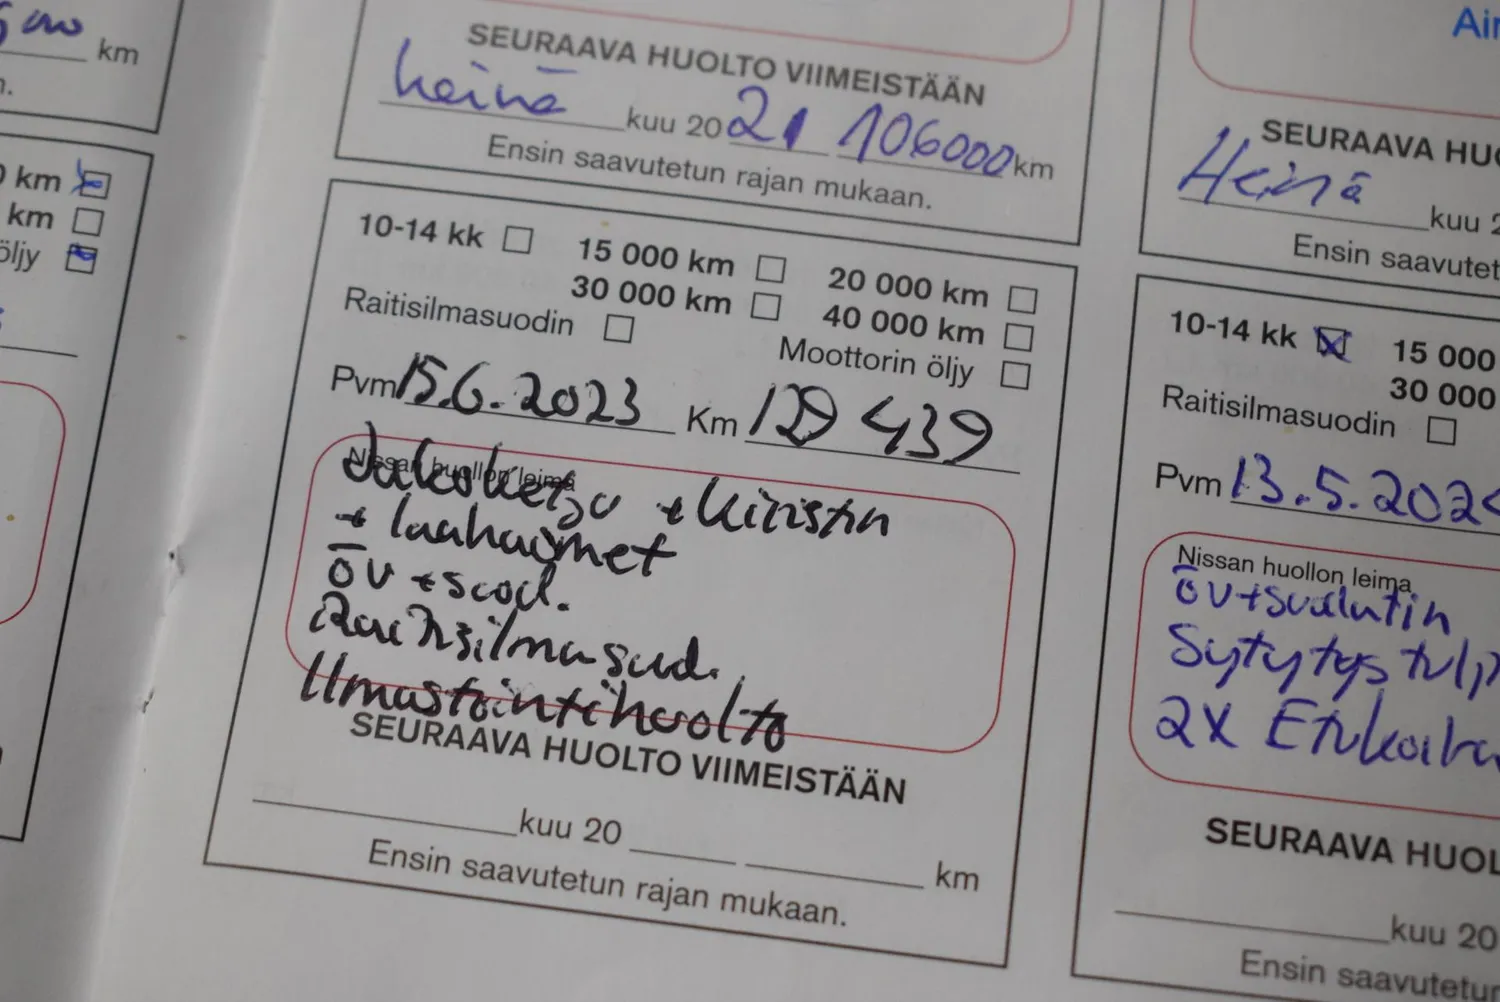 km
SEURAAVA HUOLTO VIIMEISTÄÄN
heinä kuu 20 21 106000 km
Ensin saavutetun rajan mukaan.
0 km
km
öljy
10-14 kk 15 000 km 20 000 km
30 000 km 40 000 km
Raitisilmasuodin Moottorin öljy
Pvm 15.6.2023 Km 129 439
Nissan huollon leima
Jakoketju + kiristin
+ laahaimet
öv + suod.
Raitisilmasuod.
Ilmastointihuolto
SEURAAVA HUOLTO VIIMEISTÄÄN
kuu 20 km
Ensin saavutetun rajan mukaan.
SEURAAVA HUO
Heinä kuu 2
Ensin saavutet
10-14 kk 15 000
30 000
Raitisilmasuodin
Pvm 13.5.202
Nissan huollon leima
öv+suodatin
Sytytystulp
2X Etukoira
SEURAAVA HUOL
kuu 20
Ensin saavutetun